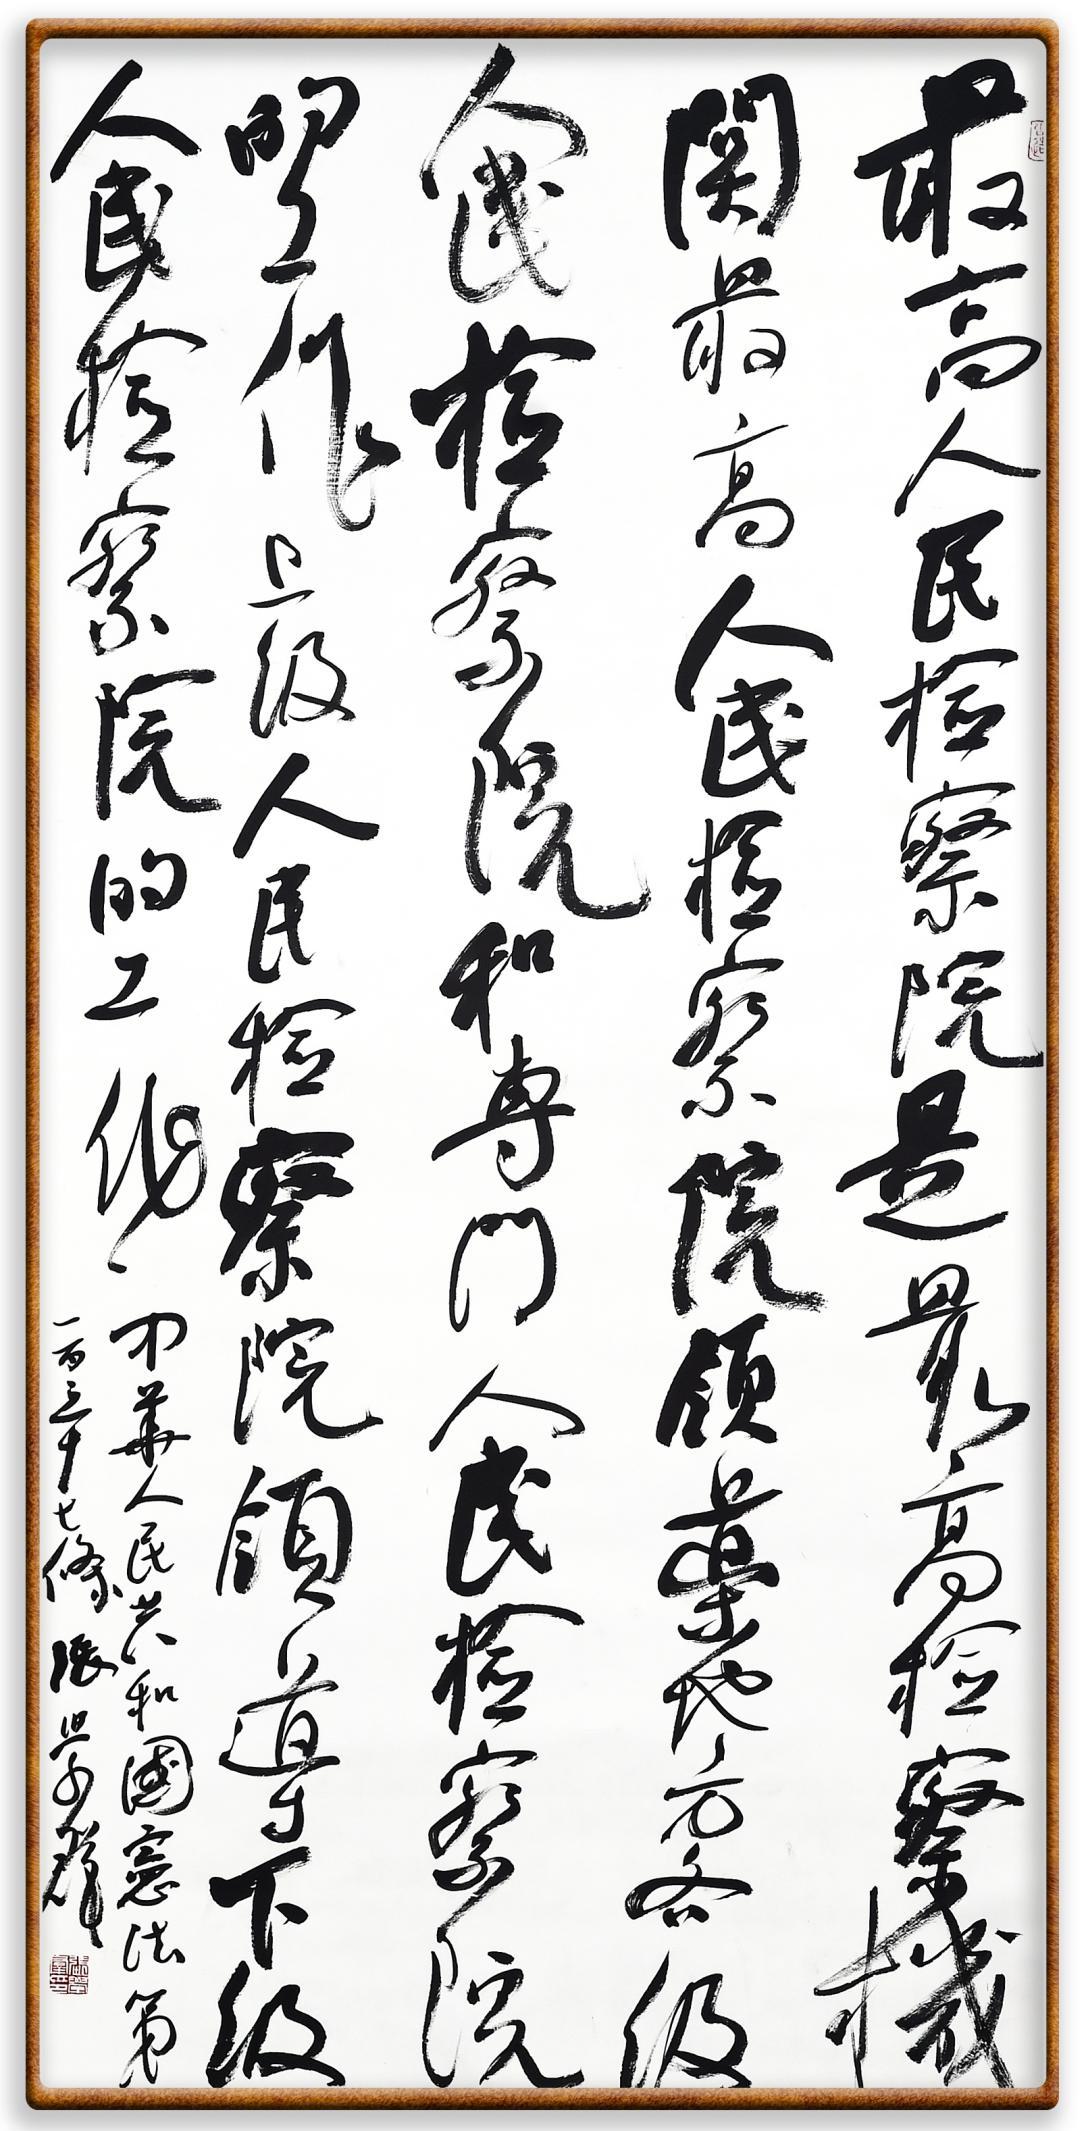 最高人民检察院是最高检察機
関最高人民检察院領導地方各级
人民检察院和專門人民检察院
的工作上级人民检察院領導下级
人民检察院的工作
中華人民共和國憲法第
一百三十七條 張學群